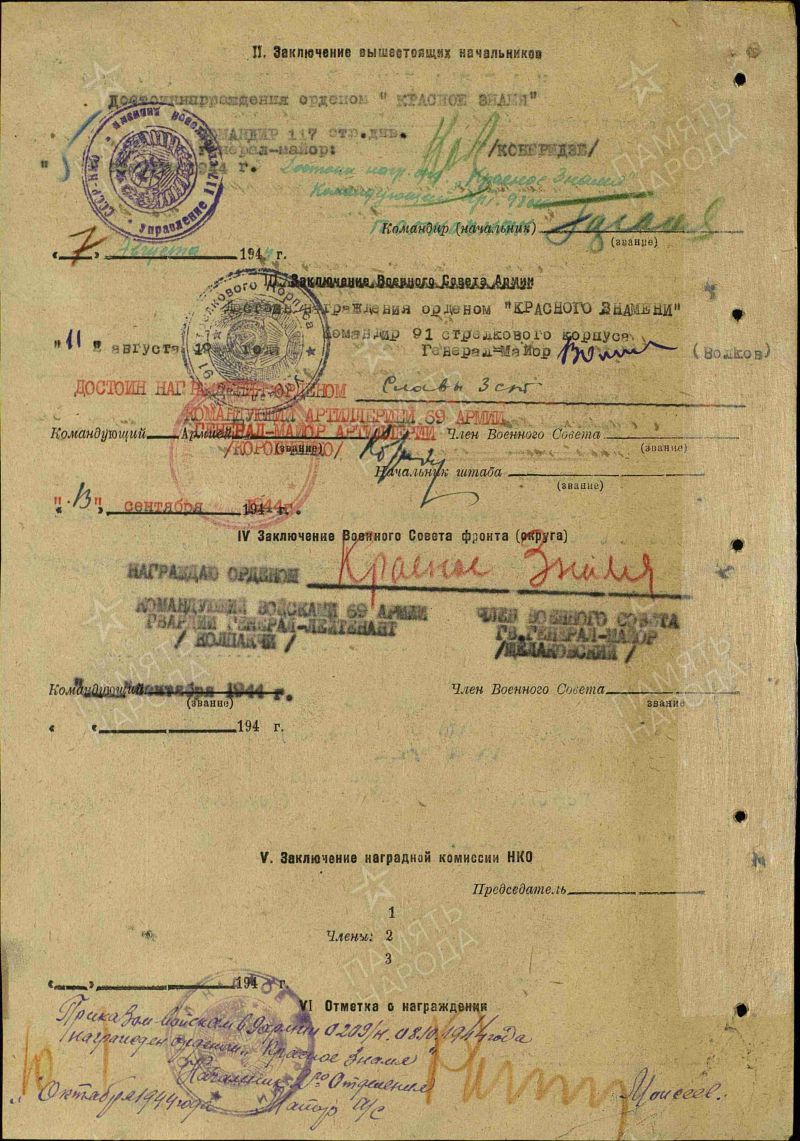 II. Заключение вышестоящих начальников
Достоин награждения орденом "КРАСНОЕ ЗНАМЯ"
КОМАНДИР 117 стр.див.
Генерал-майор: /КОБЕРИДЗЕ/
1944 г.
Достоин нагр. орд. „Красное Знамя"
Командующий арт.
Командир (начальник)
(звание)
« 7 » Августа 1944 г.
III. Заключение Военного Совета Армии
Достоин награждения орденом "КРАСНОГО ЗНАМЕНИ"
Командир 91 стрелкового корпуса
"11" августа года Генерал-Майор (Волков)
ДОСТОИН НАГРАЖДЕНИЯ ОРДЕНОМ Славы 3 ст
КОМАНДУЮЩИЙ АРТИЛЛЕРИЕЙ 69 АРМИИ
Командующий Армией Член Военного Совета
ГЕНЕРАЛ-МАЙОР АРТИЛЛЕРИИ
(звание) (звание)
Начальник штаба
(звание)
"13" сентября 1944 г.
IV Заключение Военного Совета фронта (округа)
НАГРАЖДАЮ ОРДЕНОМ Красное Знамя
КОМАНДУЮЩИЙ ВОЙСКАМИ 69 АРМИИ ЧЛЕН ВОЕННОГО СОВЕТА
ГВАРДИИ ГЕНЕРАЛ-ЛЕЙТЕНАНТ ГВ.ГЕНЕРАЛ-МАЙОР
/ КОЛПАКЧИ / /ЩЕЛАКОВСКИЙ /
Командующий сентября 1944 г. Член Военного Совета
(звание) звание
« « 194 г.
V. Заключение наградной комиссии НКО
Председатель
1
Члены: 2
3
« » 194 г.
VI Отметка о награждении
Приказом войскам 69 Армии 0209/н. 08.10.1944 года
награжден орденом "Красное Знамя"
Начальник 2го Отделения
" Октября 1944 года Майор А/С Моисеев.
СССР-НКО
Управление 117
стрелкового корпуса
91
ПАМЯТЬ НАРОДА